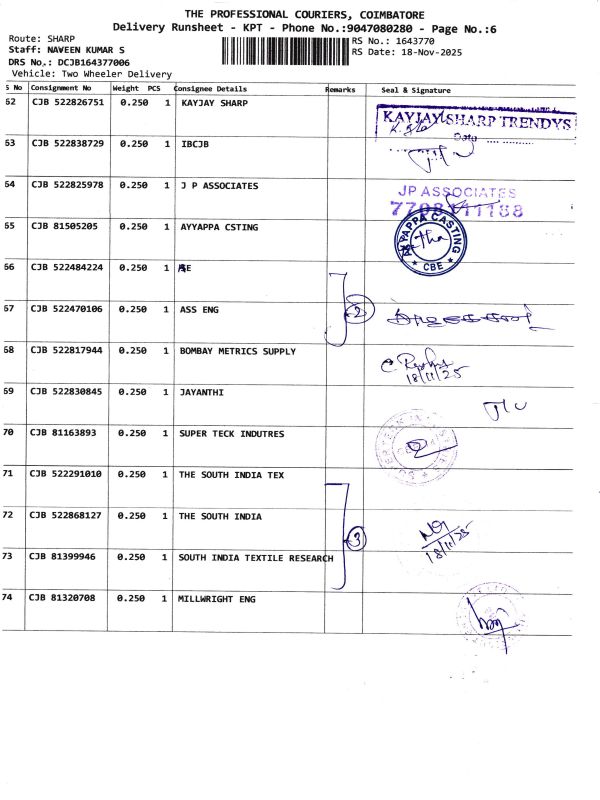 THE PROFESSIONAL COURIERS, COIMBATORE
Delivery Runsheet - KPT - Phone No.:9047080280 - Page No.:6
Route: SHARP
RS No.: 1643770
Staff: NAVEEN KUMAR S
RS Date: 18-Nov-2025
DRS No.: DCJB164377006
Vehicle: Two Wheeler Delivery
S No Consignment No Weight PCS Consignee Details Remarks Seal & Signature
62 CJB 522826751 0.250 1 KAYJAY SHARP
KAYJAY SHARP TRENDYS
Date
63 CJB 522838729 0.250 1 IBCJB
64 CJB 522825978 0.250 1 J P ASSOCIATES
JP ASSOCIATES
65 CJB 81505205 0.250 1 AYYAPPA CSTING
AYYAPPA CASTING
CBE
66 CJB 522484224 0.250 1
67 CJB 522470106 0.250 1 ASS ENG
2
68 CJB 522817944 0.250 1 BOMBAY METRICS SUPPLY
18/11/25
69 CJB 522830845 0.250 1 JAYANTHI
70 CJB 81163893 0.250 1 SUPER TECK INDUTRES
71 CJB 522291010 0.250 1 THE SOUTH INDIA TEX
72 CJB 522868127 0.250 1 THE SOUTH INDIA
3
18/11/25
73 CJB 81399946 0.250 1 SOUTH INDIA TEXTILE RESEARCH
74 CJB 81320708 0.250 1 MILLWRIGHT ENG